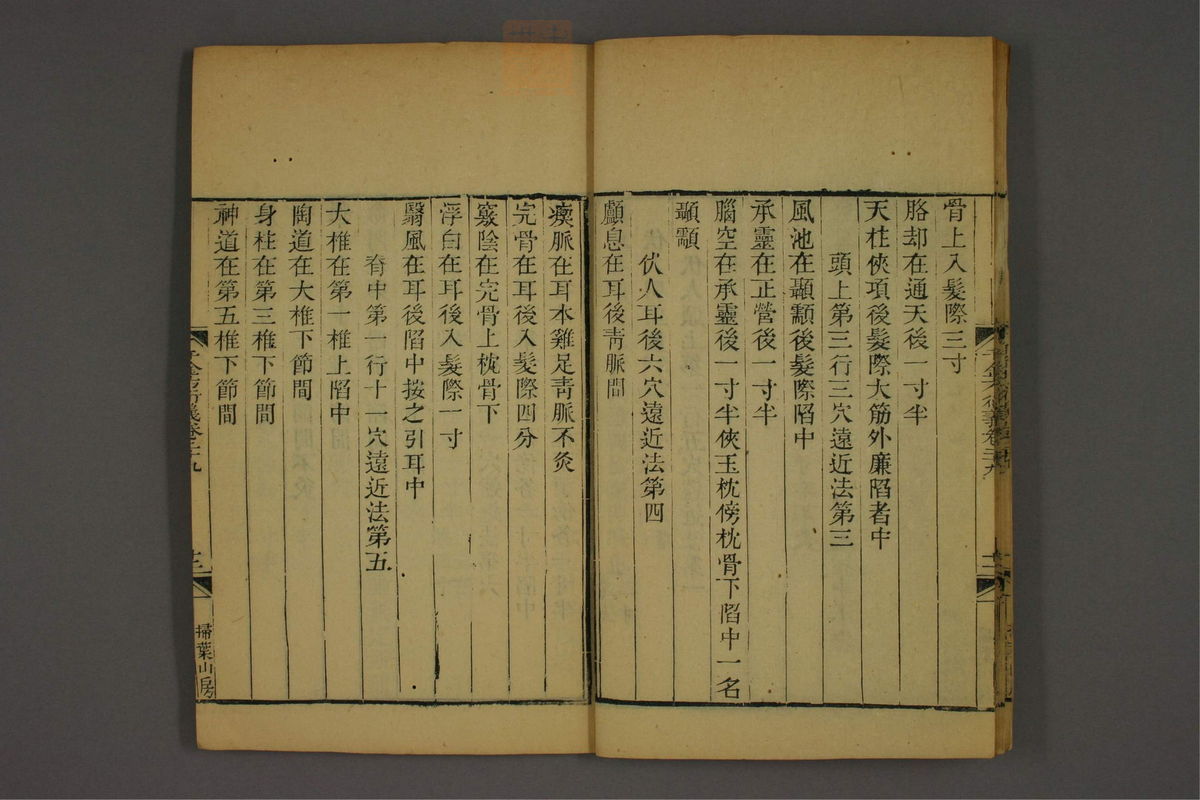 骨上入髮際三寸
胳却在通天後一寸半
天柱俠項後髮際大筋外廉陷者中
頭上第三行三穴遠近法第三
風池在顳顬後髮際陷中
承靈在正營後一寸半
腦空在承靈後一寸半俠玉枕傍枕骨下陷中一名
顳顬
伏人耳後六穴遠近法第四
顱息在耳後青脈間
瘈脈在耳本雞足青脈不灸
完骨在耳後入髮際四分
竅陰在完骨上枕骨下
浮白在耳後入髮際一寸
翳風在耳後陷中按之引耳中
脊中第一行十一穴遠近法第五
大椎在第一椎上陷中
陶道在大椎下節間
身柱在第三椎下節間
神道在第五椎下節間
掃葉山房